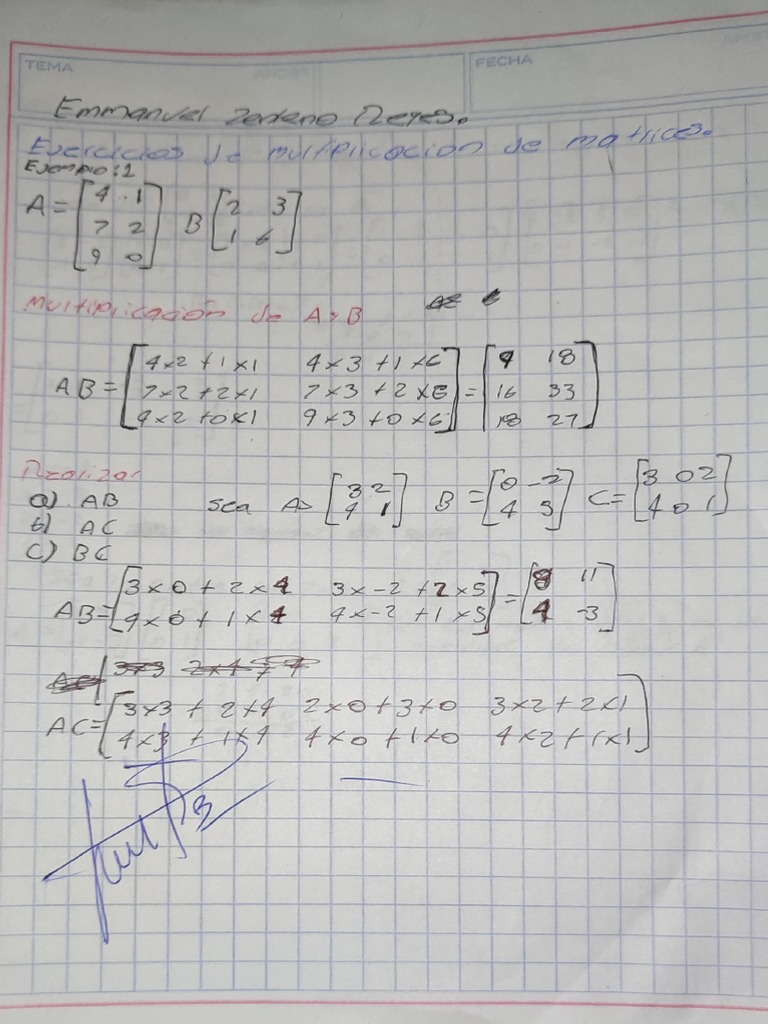 TEMA
FECHA
Emmanuel Zenteno Reyes.
Ejercicios de multiplicacion de matrices.
Ejemplo:1
A = [4 1; 7 2; 9 0] B [2 3; 1 6]
Multiplicación de A y B
AB = [4x2 + 1x1 4x3 + 1x6; 7x2 + 2x1 7x3 + 2x6; 9x2 + 0x1 9x3 + 0x6] = [9 18; 16 33; 18 27]
Realizar
a) AB sea A= [3 2; 4 1] B = [0 -2; 4 5] C = [3 0 2; 4 0 1]
b) AC
c) BC
AB = [3x0 + 2x4 3x-2 + 2x5; 4x0 + 1x4 4x-2 + 1x5] = [8 11; 4 -3]
AC = [3x3 + 2x4 2x0 + 3x0 3x2 + 2x1; 4x3 + 1x4 4x0 + 1x0 4x2 + 1x1]